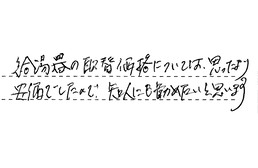 給湯器の取替価格については、思ったより
安価でしたので、知人にも勧めたいと思います